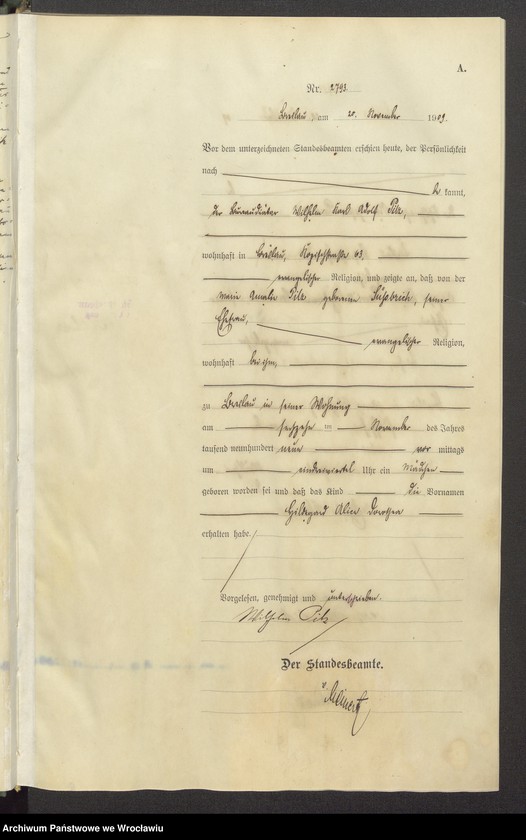 A.
Nr. 2793.
Breslau, am 20. November 1909.
Vor dem unterzeichneten Standesbeamten erschien heute, der Persönlichkeit
nach kannt,
der Wilhelm Karl Adolf Pilz,
wohnhaft in Breslau, 63,
evangelischer Religion, und zeigte an, daß von der
Marie Amalie Pilz geborenen seiner
Ehefrau,
evangelischer Religion,
wohnhaft bei ihm,
zu Breslau in seiner Wohnung
am sechzehn ten November des Jahres
tausend neunhundert neun vor mittags
um Uhr ein Mädchen
geboren worden sei und daß das Kind die Vornamen
Hildegard Alice Dorothea
erhalten habe.
Vorgelesen, genehmigt und unterschrieben.
Wilhelm Pilz
Der Standesbeamte.
Archiwum Państwowe we Wrocławiu